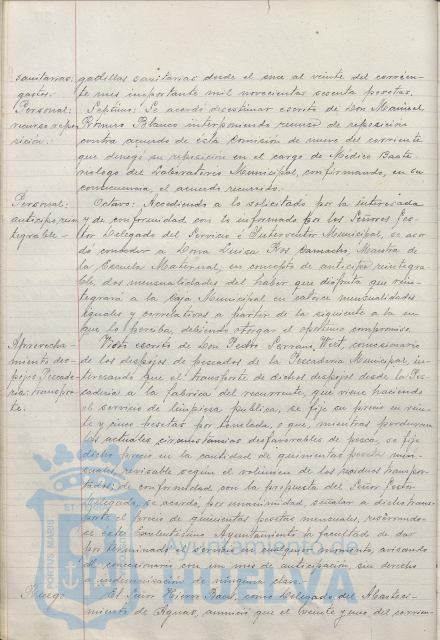 sanitarias: gadillas sanitarias desde el once al veinte del corrien-
gastos. te mes importante mil novecientas sesenta pesetas.
Personal: Septimo: Se acordó desestimar escrito de Don Manuel
recurso repo- Romero Blanco interponiendo recurso de reposición
sición: contra acuerdo de ésta Comisión de nueve del corriente
que denegó su reposición en el cargo de Médico Bacte-
riologo del Laboratorio Municipal, confirmando, en su
consecuencia, el acuerdo recurrido.
Personal: Octavo: Accediendo a lo solicitado por la interesada
anticipo rein- y de conformidad con lo informado por los Señores Ges-
tegrable- tor Delegado del Servicio e Interventor Municipal, se acor-
dó conceder a Dona Luisa Ros Camacho, Maestra de
la Escuela Maternal, en concepto de anticipo reintegra-
ble, dos mensualidades del haber que disfruta que rein-
tegrará a la Caja Municipal en catorce mensualidades
iguales y correlativas a partir de la siguiente a la en
que lo perciba, debiendo otorgar el oportuno compromiso.
Aprovecha- Visto escrito de Don Pedro Serrano West, concesionario
miento des- de los despojos de pescados de la Pescaderia Municipal, in-
pojos Pescade- teresando que el transporte de dichos despojos desde la Pes-
ria: transpor- caderia a la fabrica del recurrente, que viene haciendo
te. el servicio de limpieza publica, se fije su precio en vein-
te y cinco pesetas por tonelada, o que, mientras perduren
las actuales circunstancias desfavorables de pesca, se fije
dicho precio en la cantidad de quinientas pesetas men-
suales, revisable según el volumen de los residuos transpor-
tados; de conformidad, con la propuesta del Señor Gestor
Delegado, se acordó, por unanimidad, señalar a dicho trans-
porte el precio de quinientas pesetas mensuales, reservando-
se este Excelentisimo Ayuntamiento la facultad de dar
por terminado el servicio en cualquier momento, avisando
al concesionario con un mes de anticipación, sin derecho
a indemnización de ninguna clase.
Ruego El Señor Hierro Baez, como Delegado del Abasteci-
miento de Aguas, anunció que el veinte y uno del corrien-
PORTUS MARIS ET
Ayuntamiento de